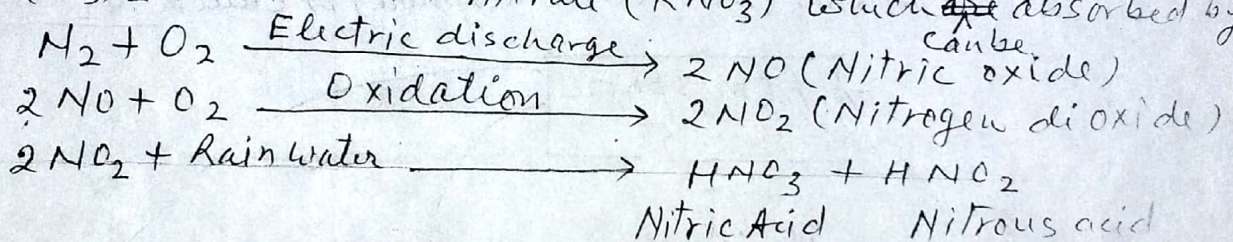 (KNO3) which are absorbed by
can be
N2 + O2 Electric discharge → 2 NO (Nitric oxide)
2 NO + O2 Oxidation → 2NO2 (Nitrogen dioxide)
2 NO2 + Rain water → HNO3 + HNO2
Nitric Acid Nitrous acid